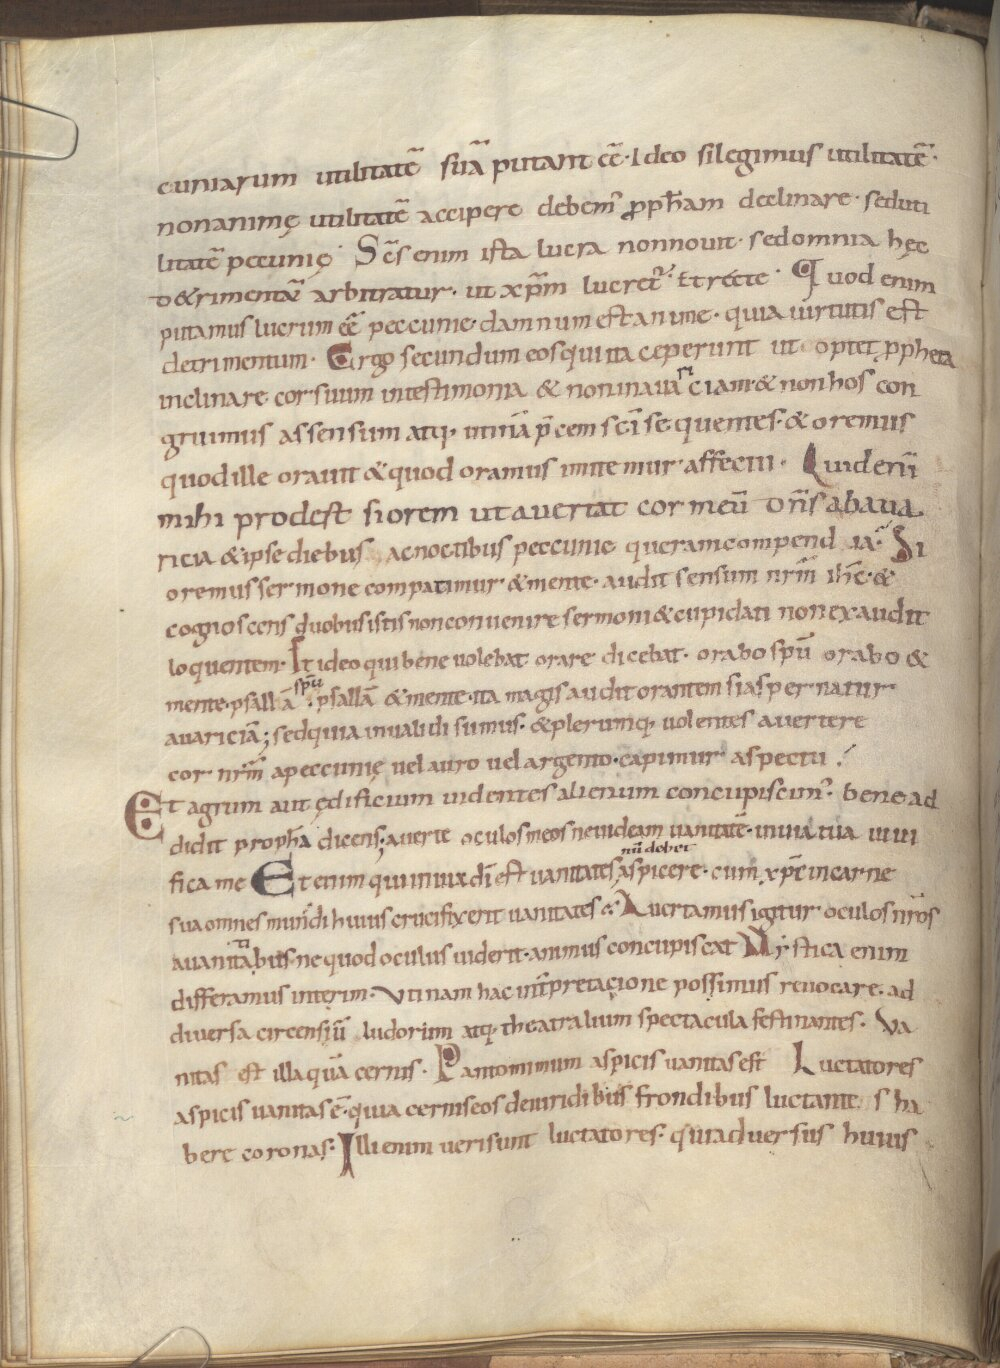 cuniarum utilitatē suā putant eē· Ideo si legimus utilitatē·
non animę utilitatē accipere debem᷒ ꝓph̄am declinare· sed uti
litatē peccunię· Sc̄s enim ista lucra non novit· sed omnia hęc
d&rimentā arbitratur· ut xp̄m lucret᷒· Et recte· Quod enim
putamus lucrum eē peccunie· damnum est anime· quia uirtutis est
detrimentum· Ergo secundum eos qui ita ceperunt ut optet ꝓpheta
inclinare cor suum in testimonia & non in auariciam· & nonhos con
gruimus assensum atq· in tīnā p̄cem sc̄i sequentes· & oremus
quod ille orauit & quod oramus imitemur affectu· Quid enī
mihi prodest si orem ut auertat cor meū dn̄s ab aua
ricia & ipse diebus ac noctibus peccunie queram compendia· Si
oremus sermone compatimur & mente· audit sensum nr̄m ih̄c· &
cognoscens duobus istis non conuenire sermoni & cupidati non exaudit
loquentem· It ideo qui bene uolebat orare dicebat· orabo spū orabo &
mente· psallā spū· psallā & mente· ita magis audit orantem si aspernatur
auariciā; sed quia inualidi sumus· & plerumq· uolentes auertere
cor nr̄m a peccunię uel auro uel argento· capimur aspectu·
Et agrum aut ędificium uidentes alienum concupiscim᷒· bene ad
didit proph̄a dicens; auerte oculos meos ne uideam uanitatē· in uia tua uiui
fica me Et enim qui in uia dī est uanitates nū debet aspicere· cum xp̄c in carne
sua omnes mundi huius crucifixerit uanitates· Auertamus igitur oculos nr̄os
a uanitatibus· ne quod oculus uiderit· animus concupiscat Mystica enim
differamus interim· Utinam hac int̄pretacione possimus reuocare· ad
diuersa circensiū ludorum atq· theatralium spectacula festinantes· Va
nitas est illa quā cernis· Pantomimum aspicis uanitas est Luctatores
aspicis uanitas ē· quia cernis eos de uiridibus frondibus luctantes ha
bere coronas· Illi enim ueri sunt luctatores· qui aduersus huius